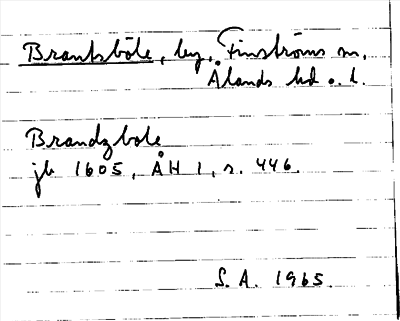 Brantsböle, by, Finströms sn,
Ålands hd o. l.
Brandzbole
jb 1605, ÅH 1, s. 446.
S. A. 1965.